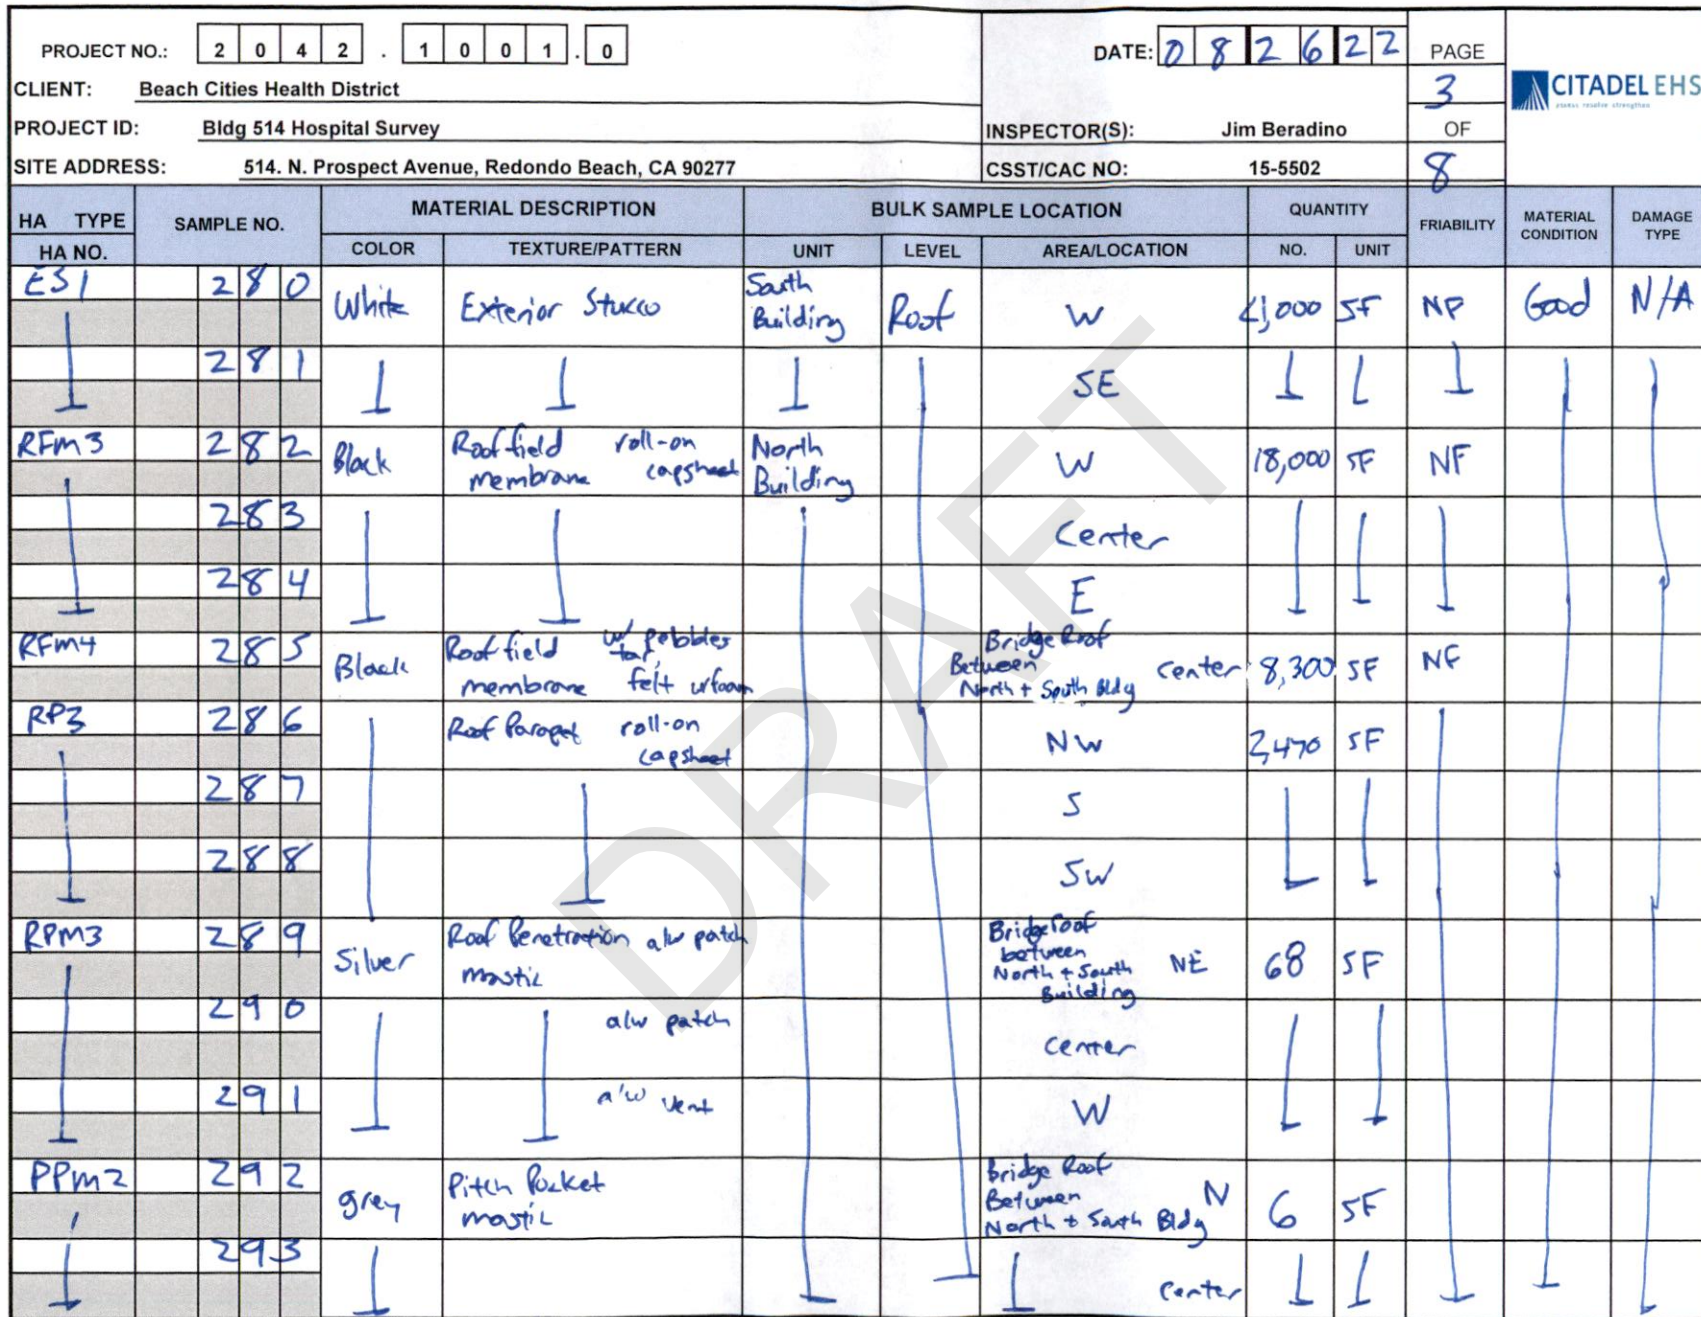 PROJECT NO.: 2 0 4 2 . 1 0 0 1 . 0
DATE: 0 8 2 6 2 2
PAGE
3
OF
8
CITADEL EHS
CLIENT: Beach Cities Health District
PROJECT ID: Bldg 514 Hospital Survey
INSPECTOR(S): Jim Beradino
SITE ADDRESS: 514. N. Prospect Avenue, Redondo Beach, CA 90277
CSST/CAC NO: 15-5502
HA TYPE
HA NO.
SAMPLE NO.
MATERIAL DESCRIPTION
COLOR TEXTURE/PATTERN
BULK SAMPLE LOCATION
UNIT LEVEL AREA/LOCATION
QUANTITY
NO. UNIT
FRIABILITY
MATERIAL CONDITION
DAMAGE TYPE
ES1 280 White Exterior Stucco South Building Roof W <1,000 SF NF Good N/A
281 SE
RFM3 282 Black Roof field membrane roll-on capsheet North Building W 18,000 SF NF
283 Center
284 E
RFM4 285 Black Roof field membrane w/ pebbles tar, felt w/foam Bridge Roof Between North + South Bldg Center 8,300 SF NF
RP3 286 Roof Parapet roll-on capsheet NW 2,470 SF
287 S
288 SW
RPM3 289 Silver Roof Penetration mastic a/w patch Bridge roof between North + South Building NE 68 SF
290 a/w patch center
291 a/w vent W
PPM2 292 grey Pitch Pocket mastic Bridge Roof Between North + South Bldg N 6 SF
293 Center
DRAFT